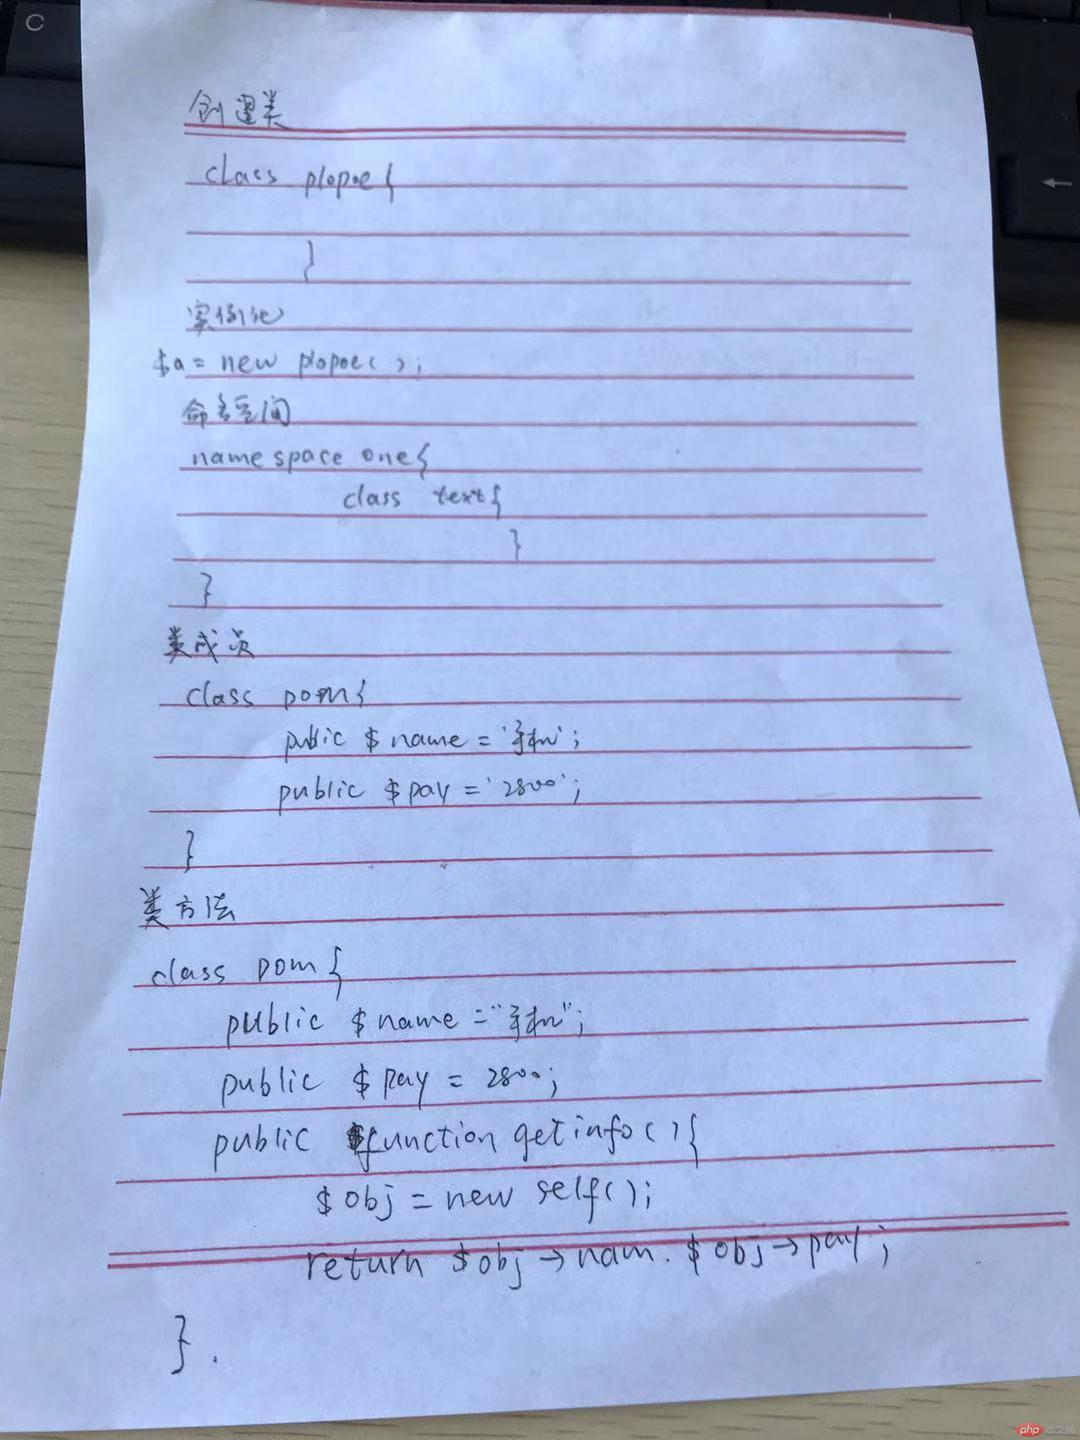 创建类
class plopoe{
}
实例化
$a = new plopoe();
命名空间
namespace one{
class text{
}
}
类成员
class Dom{
public $name = '手机';
public $pay = '2800';
}
类方法
class Dom{
public $name = "手机";
public $pay = 2800;
public function getinfo(){
$obj = new self();
return $obj→nam. $obj→pay;
}.
php